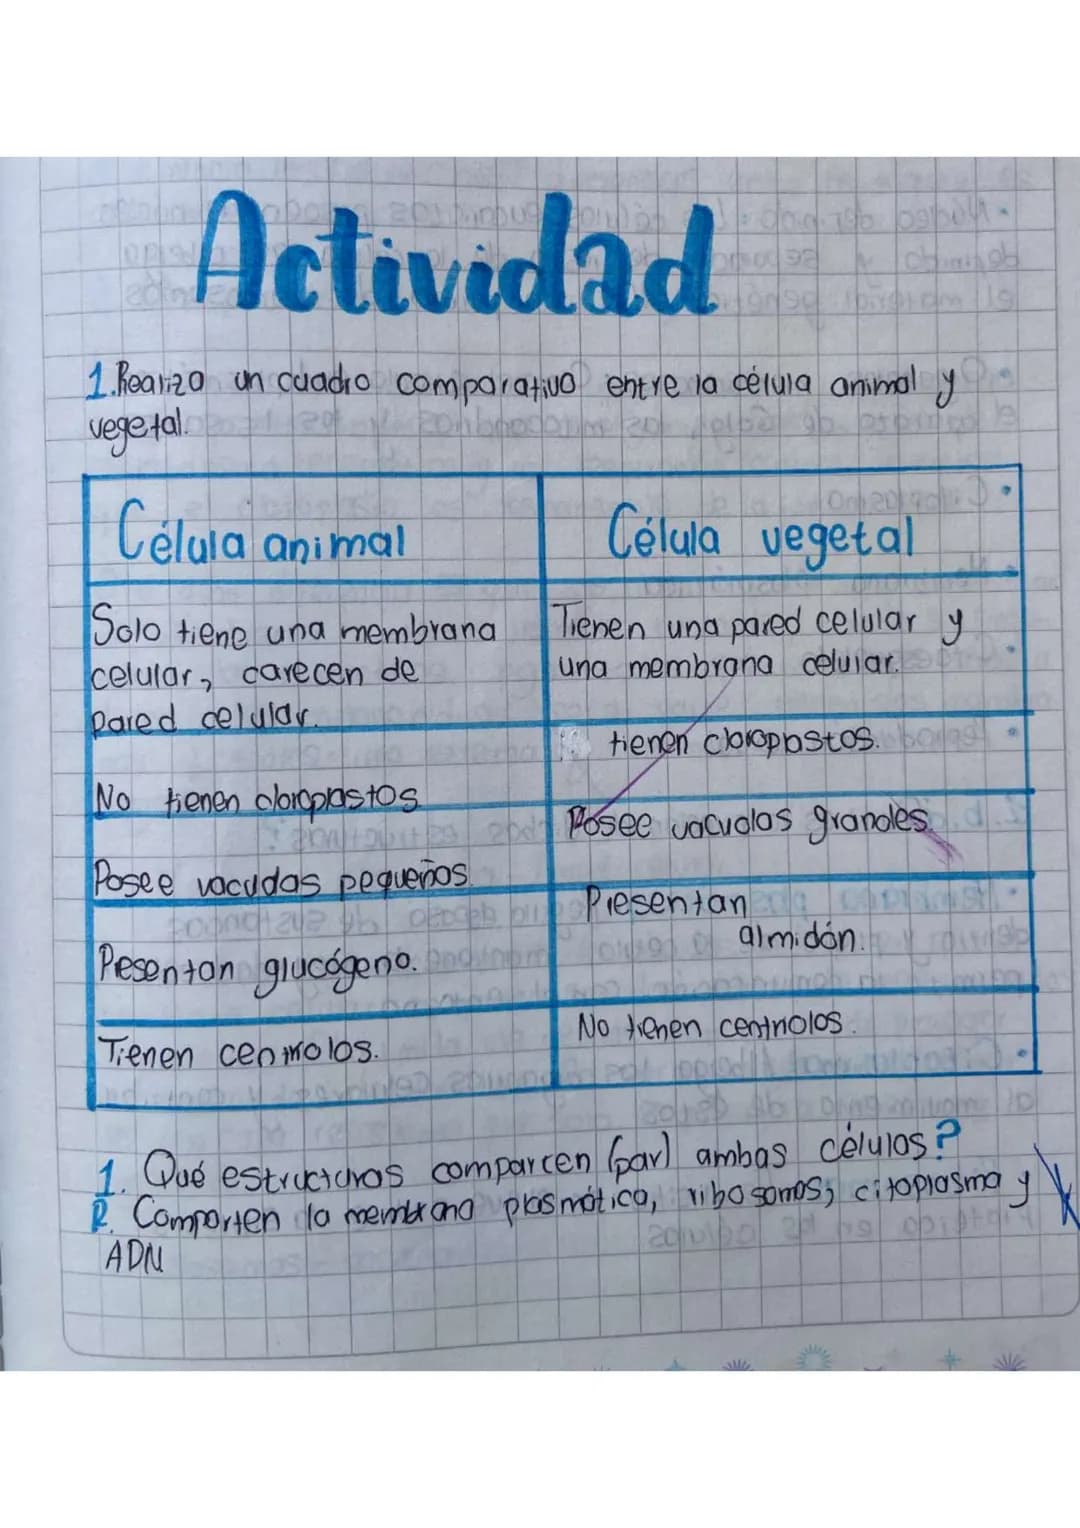 Actividad
1. Realizo un cuadro comparativo entre la célula animal y
vegetal.
Célula animal
Célula vegetal
Solo tiene una membrana
celular, carecen de
pared celular.
Tienen una pared celular y
una membrana celular.
No tienen cloroplastos
tienen cloroplastos.
Posee vacuolas pequeños.
Posee vacuolas grandes.
Presentan glucógeno.
Presentan
almidón.
Tienen centriolos.
No tienen centriolos.
1. Qué estructuras comparcen (par) ambas células?
R. Comparten la membrana plasmática, ribosomas, citoplasma y
ADN